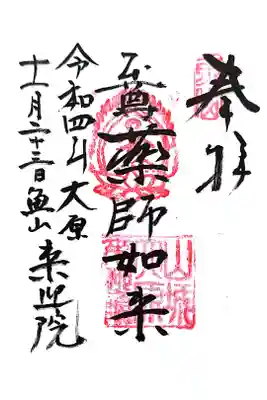 奉拝
至尊薬師如来
令和四年
大原
十一月二十三日
魚山
来迎院